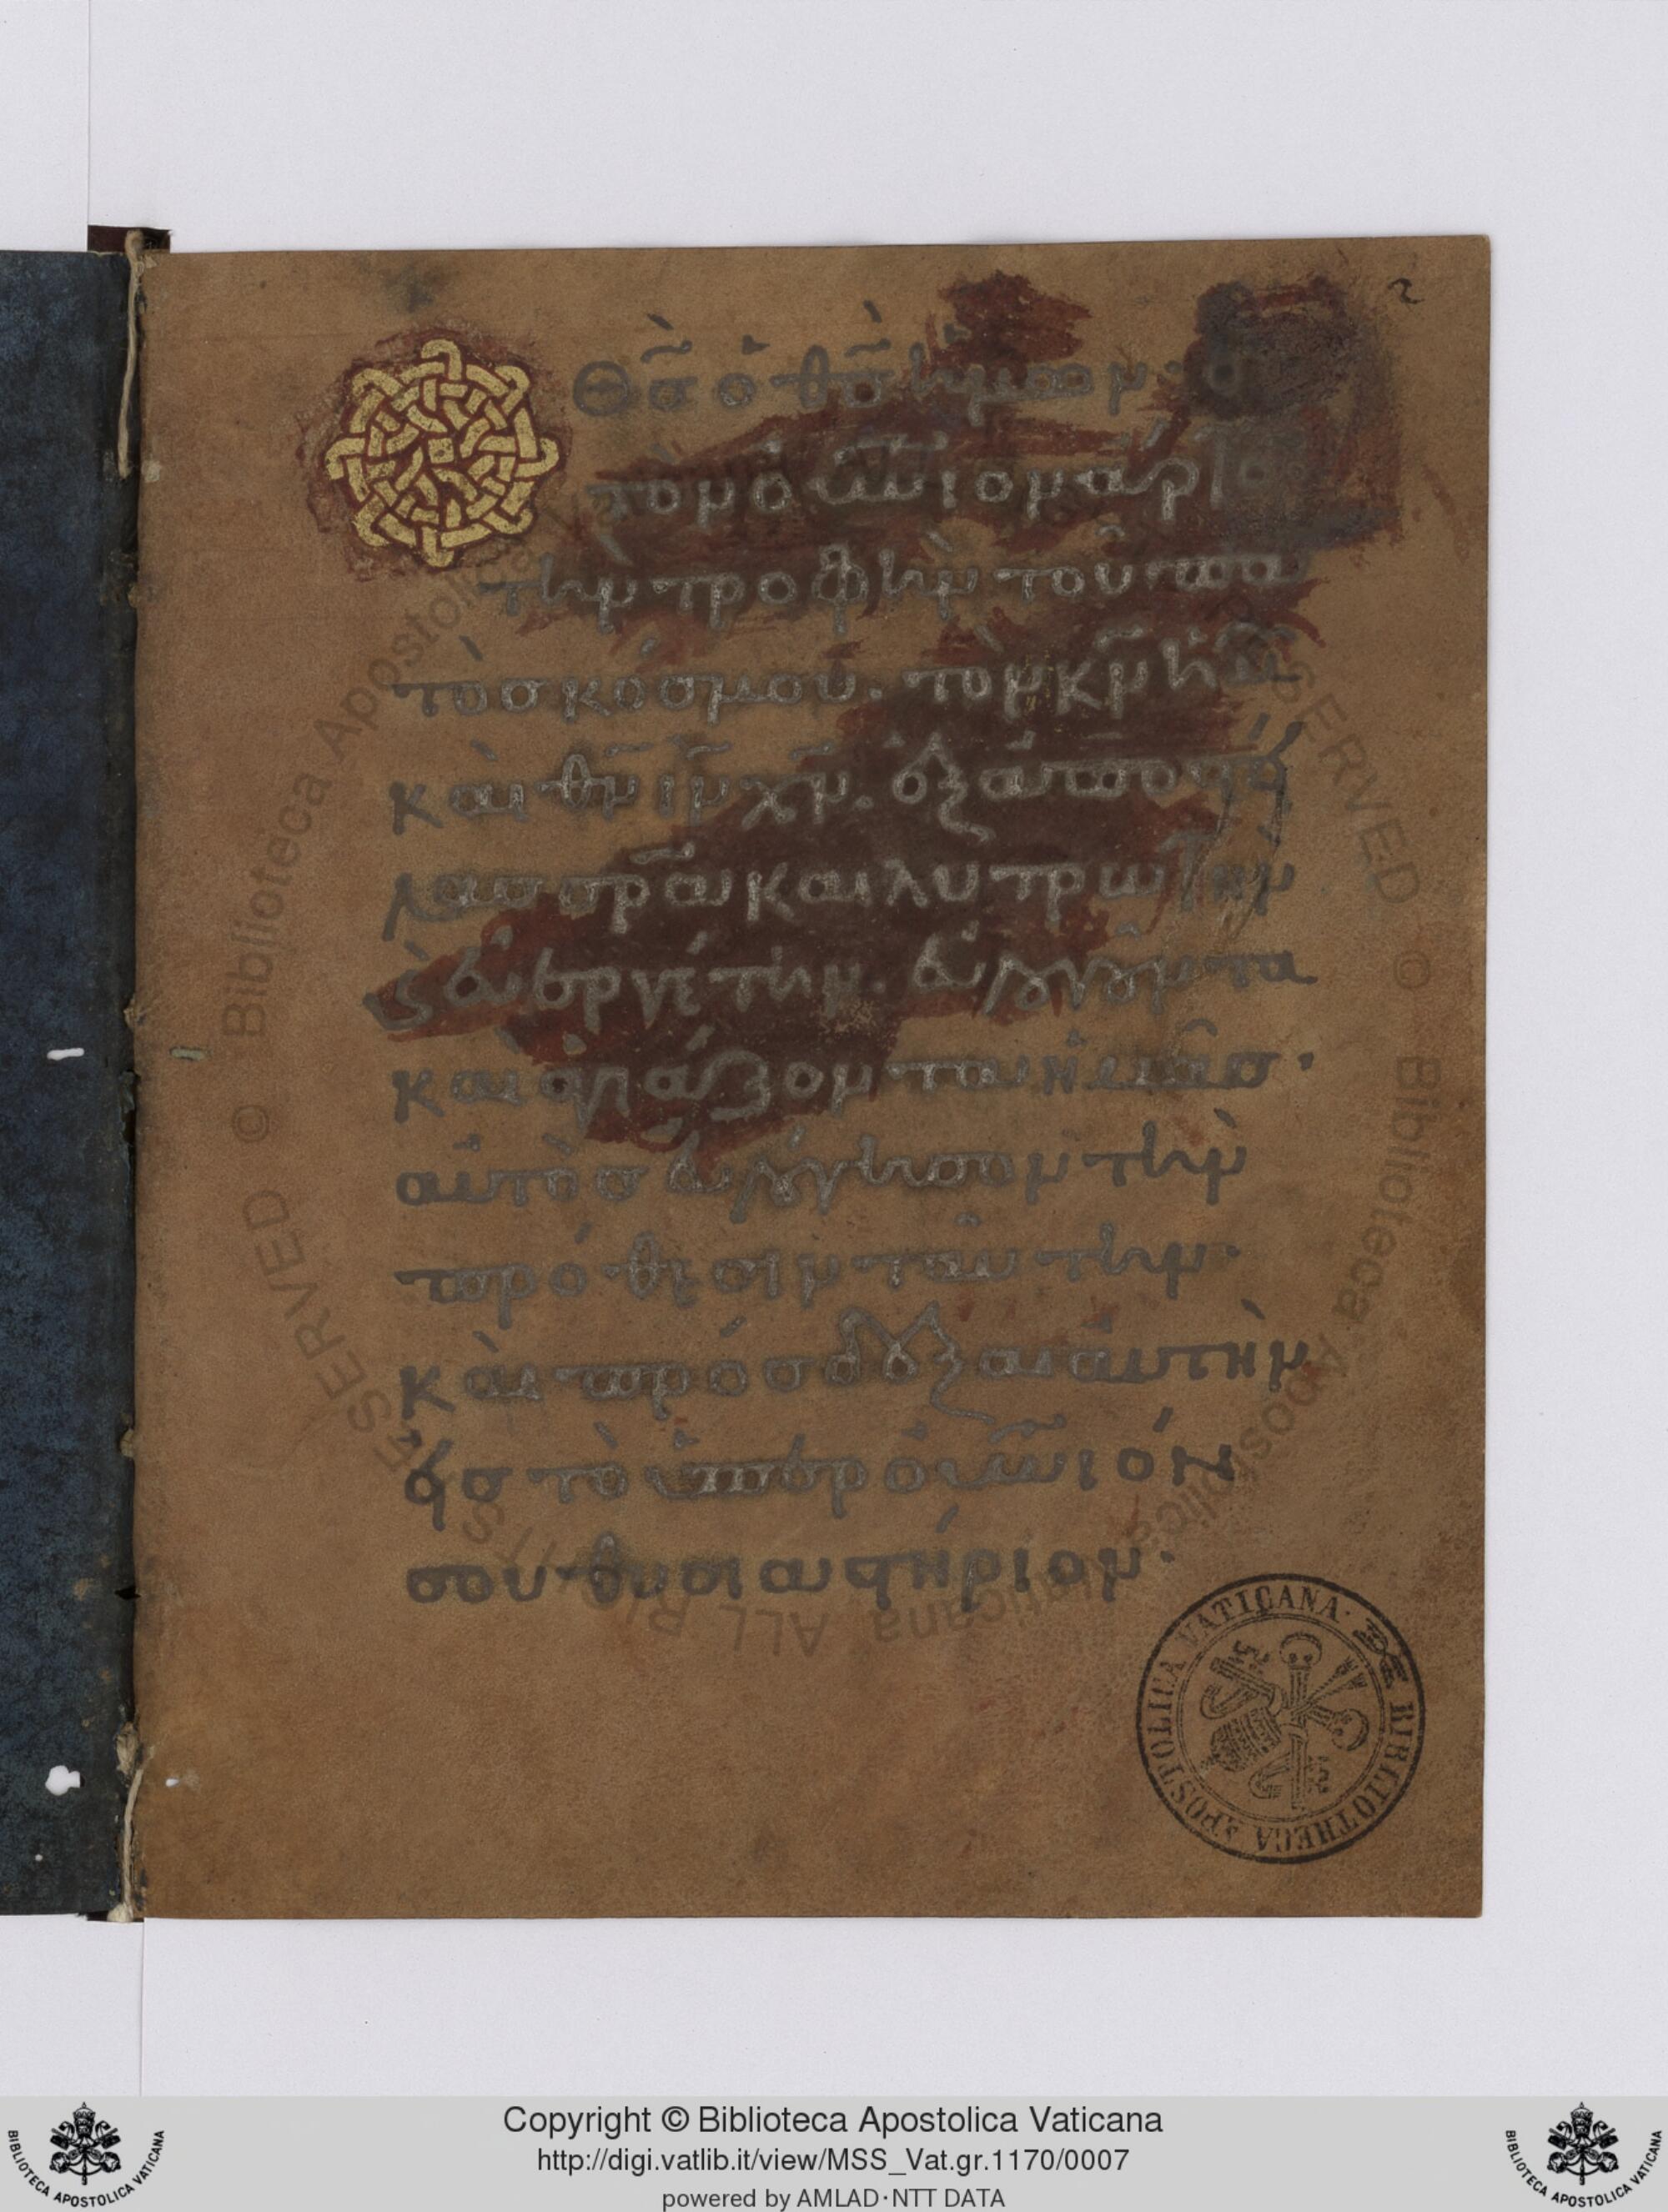 2
Θσ̅ ὁ θσ̅ ἡμῶν· ὁ
τὸν ὀυνιον ἄρτο
τὴν τροφὴν τοῦ πα
τὸσ κόσμου. τὸν κν̅ ἡμ
καὶ θν̅ ιν̅ χν̅. ἐξαποστεί
λασ σρ̅α καὶ λυτρωτὴν
ϛ εὐεργέτην. εὐλογοῦντα
καὶ ἁγιάζοντα ἡμᾶσ·
αὐτὸσ εὐλόγησον τὴν
πρόθεσιν ταύτην·
καὶ πρόσδεξαι αὐτὴν
εἰσ τὸ ὑπερουνιόν
σου θυσιαστήριον·
BIBLIOTHECA APOSTOLICA VATICANA
Copyright © Biblioteca Apostolica Vaticana
http://digi.vatlib.it/view/MSS_Vat.gr.1170/0007
powered by AMLAD·NTT DATA
BIBLIOTECA APOSTOLICA VATICANA
BIBLIOTECA APOSTOLICA VATICANA